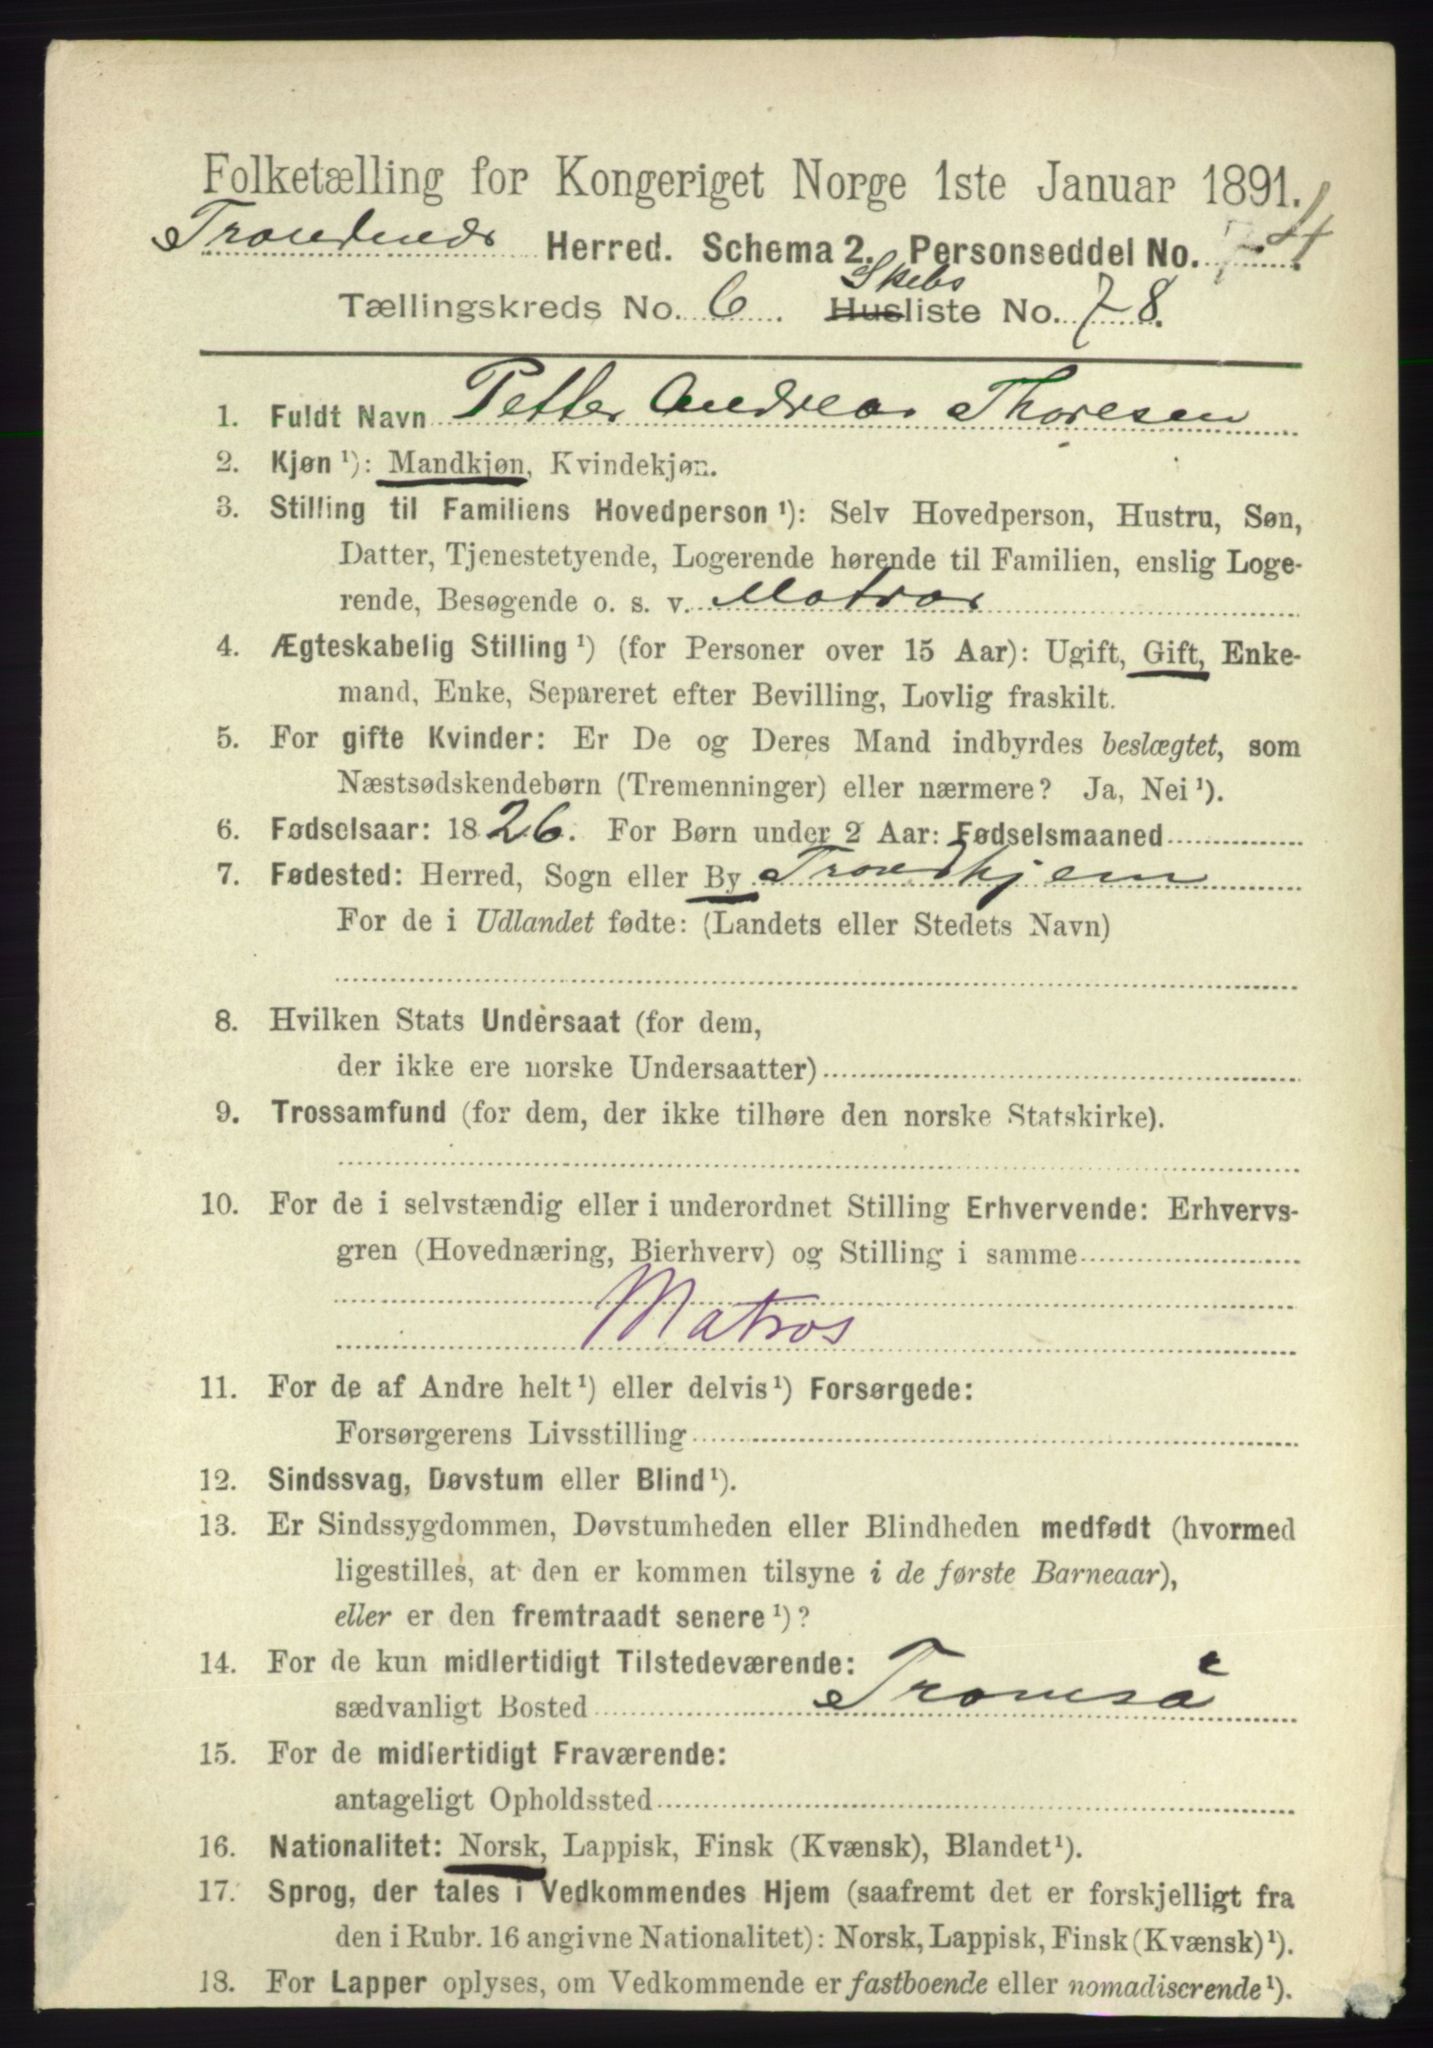 Folketælling for Kongeriget Norge 1ste Januar 1891.
Trondenes Herred. Schema 2. Personseddel No. 4
Tællingskreds No. 6. Skibs Husliste No. 78.
1. Fuldt Navn Petter Andreas Thoresen
2. Kjøn ¹): Mandkjøn, Kvindekjøn.
3. Stilling til Familiens Hovedperson ¹): Selv Hovedperson, Hustru, Søn,
Datter, Tjenestetyende, Logerende hørende til Familien, enslig Loge-
rende, Besøgende o. s. v. Matros
4. Ægteskabelig Stilling ¹) (for Personer over 15 Aar): Ugift, Gift, Enke-
mand, Enke, Separeret efter Bevilling, Lovlig fraskilt.
5. For gifte Kvinder: Er De og Deres Mand indbyrdes beslægtet, som
Næstsødskendebørn (Tremenninger) eller nærmere? Ja, Nei ¹).
6. Fødselsaar: 1826. For Børn under 2 Aar: Fødselsmaaned
7. Fødested: Herred, Sogn eller By Trondhjem
For de i Udlandet fødte: (Landets eller Stedets Navn)
8. Hvilken Stats Undersaat (for dem,
der ikke ere norske Undersaatter)
9. Trossamfund (for dem, der ikke tilhøre den norske Statskirke).
10. For de i selvstændig eller i underordnet Stilling Erhvervende: Erhvervs-
gren (Hovednæring, Bierhverv) og Stilling i samme
Matros
11. For de af Andre helt ¹) eller delvis ¹) Forsørgede:
Forsørgerens Livsstilling
12. Sindssvag, Døvstum eller Blind ¹).
13. Er Sindssygdommen, Døvstumheden eller Blindheden medfødt (hvormed
ligestilles, at den er kommen tilsyne i de første Barneaar),
eller er den fremtraadt senere ¹)?
14. For de kun midlertidigt Tilstedeværende:
sædvanligt Bosted Tromsø
15. For de midlertidigt Fraværende:
antageligt Opholdssted
16. Nationalitet: Norsk, Lappisk, Finsk (Kvænsk), Blandet ¹).
17. Sprog, der tales i Vedkommendes Hjem (saafremt det er forskjelligt fra
den i Rubr. 16 angivne Nationalitet): Norsk, Lappisk, Finsk (Kvænsk) ¹).
18. For Lapper oplyses, om Vedkommende er fastboende eller nomadiserende ¹).